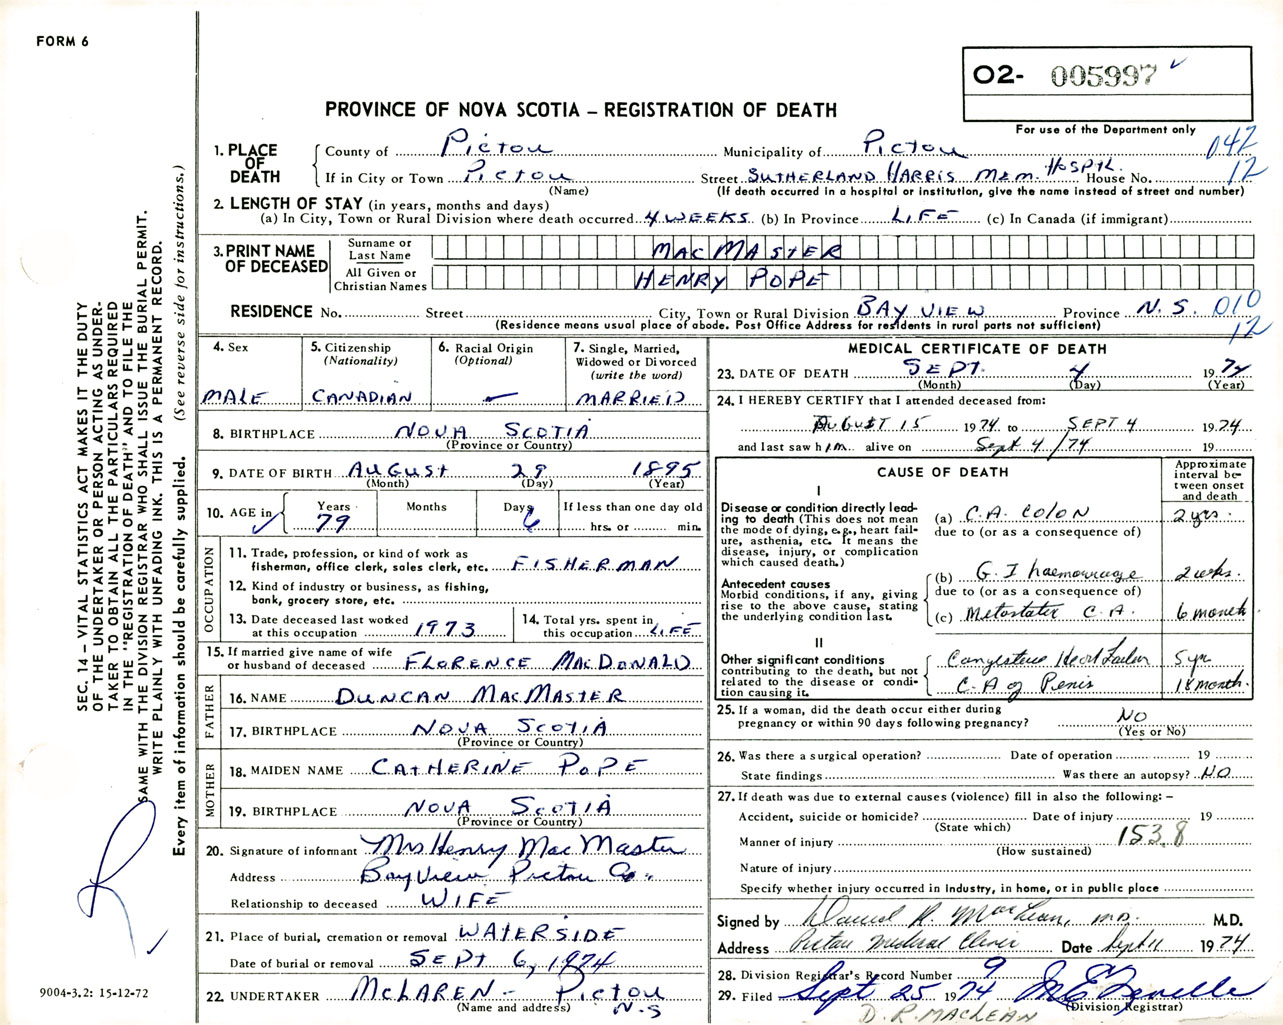 FORM 6
O2- 005997
PROVINCE OF NOVA SCOTIA – REGISTRATION OF DEATH
For use of the Department only
042
12
1. PLACE OF DEATH
County of Pictou Municipality of Pictou
If in City or Town Pictou Street SUTHERLAND HARRIS MEM. HOSPTL. House No.
(Name) (If death occurred in a hospital or institution, give the name instead of street and number)
2. LENGTH OF STAY (in years, months and days)
(a) In City, Town or Rural Division where death occurred 4 WEEKS (b) In Province LIFE (c) In Canada (if immigrant)
3. PRINT NAME OF DECEASED
Surname or Last Name MACMASTER
All Given or Christian Names HENRY POPE
RESIDENCE No. Street City, Town or Rural Division BAY VIEW Province N.S. 010
(Residence means usual place of abode. Post Office Address for residents in rural parts not sufficient)
12
4. Sex MALE
5. Citizenship (Nationality) CANADIAN
6. Racial Origin (Optional) –
7. Single, Married, Widowed or Divorced (write the word) MARRIED
8. BIRTHPLACE NOVA SCOTIA
(Province or Country)
9. DATE OF BIRTH AUGUST 29 1895
(Month) (Day) (Year)
10. AGE in Years 79 Months Days 6 If less than one day old hrs. or min.
OCCUPATION
11. Trade, profession, or kind of work as fisherman, office clerk, sales clerk, etc. FISHERMAN
12. Kind of industry or business, as fishing, bank, grocery store, etc.
13. Date deceased last worked at this occupation 1973
14. Total yrs. spent in this occupation LIFE
15. If married give name of wife or husband of deceased FLORENCE MACDONALD
FATHER
16. NAME DUNCAN MACMASTER
17. BIRTHPLACE NOVA SCOTIA
(Province or Country)
MOTHER
18. MAIDEN NAME CATHERINE POPE
19. BIRTHPLACE NOVA SCOTIA
(Province or Country)
20. Signature of informant Mrs Henry MacMaster
Address Bay View Pictou Co.
Relationship to deceased WIFE
21. Place of burial, cremation or removal WATERSIDE
Date of burial or removal SEPT 6, 1974
22. UNDERTAKER McLAREN – Pictou N.S
(Name and address)
MEDICAL CERTIFICATE OF DEATH
23. DATE OF DEATH SEPT. 4 1974
(Month) (Day) (Year)
24. I HEREBY CERTIFY that I attended deceased from:
AUGUST 15 1974 to SEPT 4 1974
and last saw him alive on Sept 4/74 19
CAUSE OF DEATH
Approximate interval between onset and death
I
Disease or condition directly leading to death (This does not mean the mode of dying, e.g., heart failure, asthenia, etc. It means the disease, injury, or complication which caused death.)
(a) C.A. COLON 2 yrs.
due to (or as a consequence of)
Antecedent causes
Morbid conditions, if any, giving rise to the above cause, stating the underlying condition last.
(b) G.I haemorrage 2 wks.
due to (or as a consequence of)
(c) Metastatic C.A. 6 month
II
Other significant conditions contributing to the death, but not related to the disease or condition causing it.
Congestive Heart Failure 5 yr
C.A of Penis 18 month.
25. If a woman, did the death occur either during pregnancy or within 90 days following pregnancy? NO
(Yes or No)
26. Was there a surgical operation? Date of operation 19
State findings Was there an autopsy? NO
27. If death was due to external causes (violence) fill in also the following: –
Accident, suicide or homicide? Date of injury 19
(State which)
153.8
Manner of injury
(How sustained)
Nature of injury
Specify whether injury occurred in industry, in home, or in public place
Signed by Daniel R. MacLean, M.D. M.D.
Address Pictou Medical Clinic Date Sept 11 1974
28. Division Registrar's Record Number 9
29. Filed Sept 25 1974
(Division Registrar)
D.R. MACLEAN
SEC. 14 – VITAL STATISTICS ACT MAKES IT THE DUTY
OF THE UNDERTAKER OR PERSON ACTING AS UNDER-
TAKER TO OBTAIN ALL THE PARTICULARS REQUIRED
IN THE "REGISTRATION OF DEATH" AND TO FILE THE
SAME WITH THE DIVISION REGISTRAR WHO SHALL ISSUE THE BURIAL PERMIT.
WRITE PLAINLY WITH UNFADING INK. THIS IS A PERMANENT RECORD.
Every item of information should be carefully supplied. (See reverse side for instructions.)
9004-3.2: 15-12-72